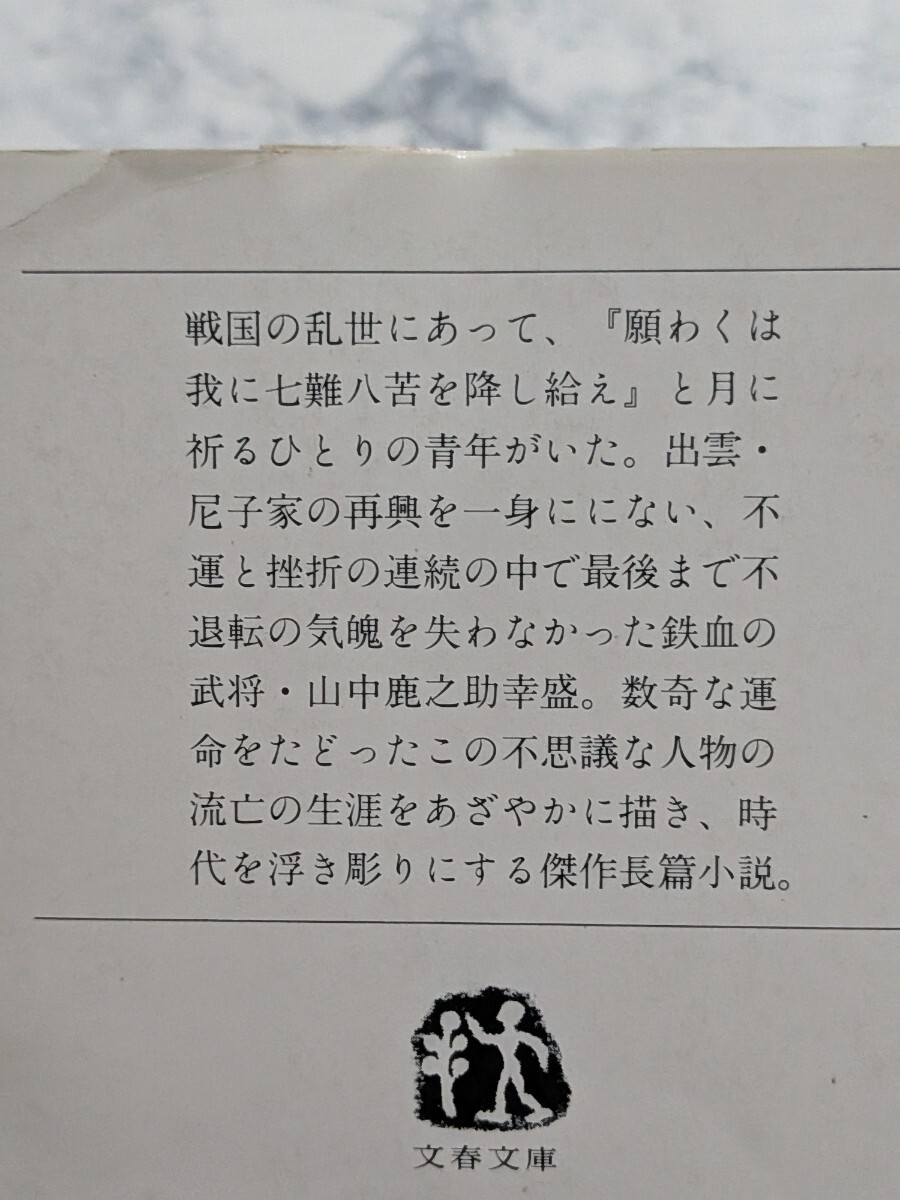 戦国の乱世にあって、『願わくは
我に七難八苦を降し給え』と月に
祈るひとりの青年がいた。出雲・
尼子家の再興を一身ににない、不
運と挫折の連続の中で最後まで不
退転の気魄を失わなかった鉄血の
武将・山中鹿之助幸盛。数奇な運
命をたどったこの不思議な人物の
流亡の生涯をあざやかに描き、時
代を浮き彫りにする傑作長篇小説。
文春文庫